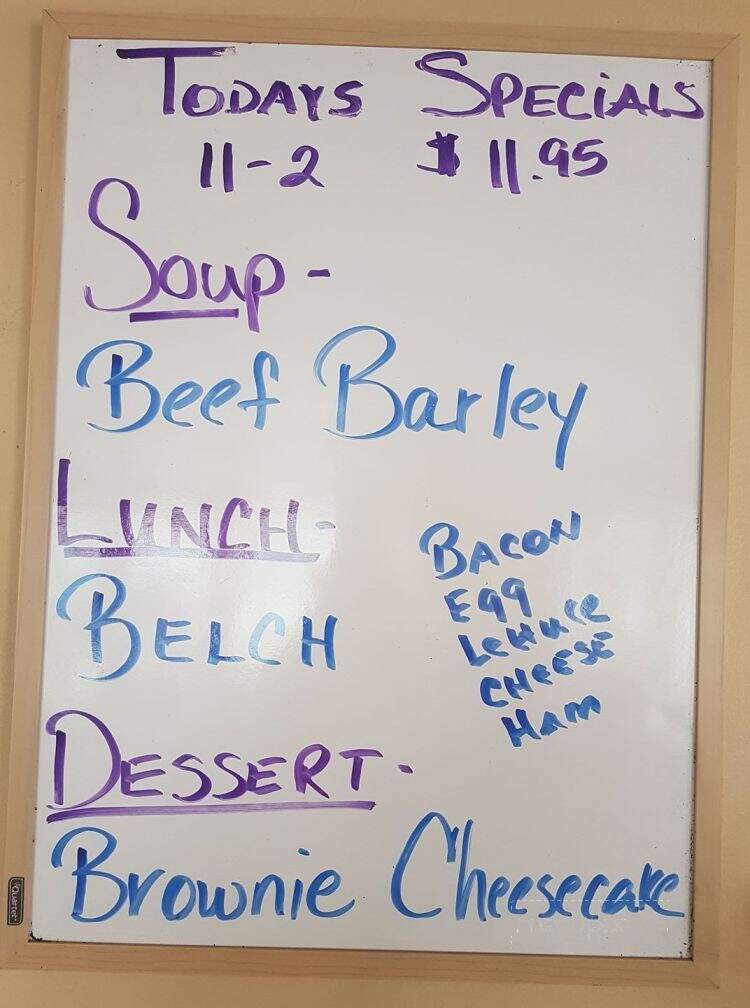 TODAYS SPECIALS
11-2 $11.95
Soup-
Beef Barley
LUNCH-
BELCH
BACON
Egg
Lettuce
CHEESE
HAM
DESSERT-
Brownie Cheesecake
Quartet